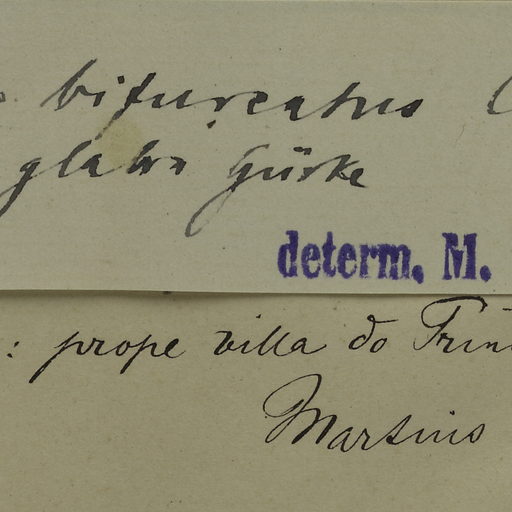 bifurcatus
glabra Gürke
determ. M.
: prope villa do Trin
Martius